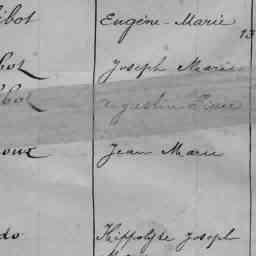 ibot Eugène-Marie
13
bot Joseph Marie
bot Augustin
Jean Marie
do Hippolyte Joseph